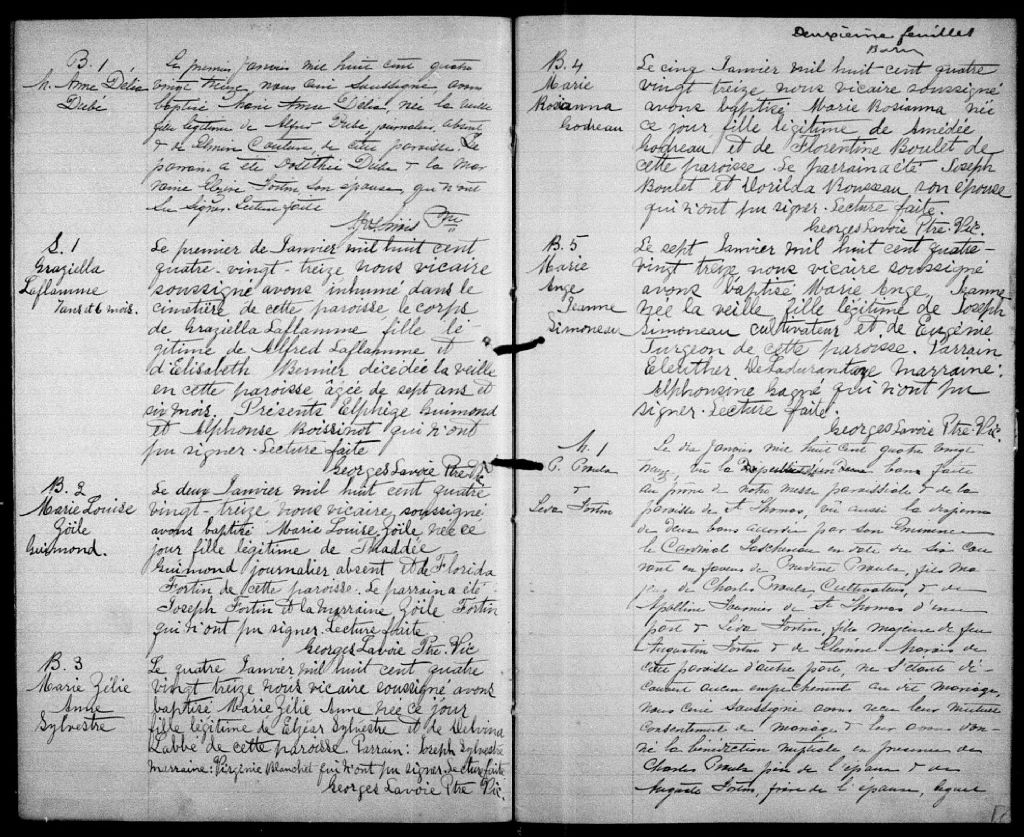 B. 1
M. Anne Délia
Dubé
Le premier Janvier mil huit cent quatre
vingt treize, nous curé soussigné avons
baptisé Marie Anne Délia, née la veille
fille légitime de Alfred Dubé, journalier, absent
& de Couture, de cette paroisse. Le
parrain a été Dubé & la mar-
raine Fortin son épouse, qui n'ont
su signer. Lecture faite
Ptre
S. 1
Graziella
Laflamme
7 ans et 6 mois.
Le premier de Janvier mil huit cent
quatre-vingt-treize nous vicaire
soussigné avons inhumé dans le
cimetière de cette paroisse le corps
de Graziella Laflamme fille lé-
gitime de Alfred Laflamme et
d'Elisabeth Bernier décédée la veille
en cette paroisse âgée de sept ans et
six mois. Présents Elphège Guimond
et Alphonse Boissinot qui n'ont
pu signer. Lecture faite
Georges Lavoie Ptre Vic
B. 2
Marie Louise
Zoïle
Guimond.
Le deux Janvier mil huit cent quatre
vingt-treize nous vicaire soussigné
avons baptisé Marie Louise Zoïle née ce
jour fille légitime de Thaddée
Guimond journalier absent et de Florida
Fortin de cette paroisse. Le parrain a été
Joseph Fortin et la marraine Zoïle Fortin
qui n'ont pu signer. Lecture faite
Georges Lavoie Ptre-Vic
B. 3
Marie Zélie
Anne
Sylvestre
Le quatre Janvier mil huit cent quatre
vingt treize nous vicaire soussigné avons
baptisé Marie Zélie Anne née ce jour
fille légitime de Elzéar Sylvestre et de Delvina
Labbé de cette paroisse. Parrain: Joseph Sylvestre
Marraine: Virginie Blanchet qui n'ont pu signer. Lecture faite
Georges Lavoie Ptre Vic.
Deuxième feuillet
B. 4
Marie
Rosianna
Godreau
Le cinq Janvier mil huit cent quatre
vingt treize nous vicaire soussigné
avons baptisé Marie Rosianna née
ce jour fille légitime de Amédée
Godreau et de Florentine Boulet de
cette paroisse. Le parrain a été Joseph
Boulet et Dorilda Rousseau, son épouse
qui n'ont pu signer. Lecture faite.
Georges Lavoie Ptre-Vic.
B. 5
Marie
Ange
Jeanne
Simoneau
Le sept Janvier mil huit cent quatre-
vingt treize nous vicaire soussigné
avons baptisé Marie Ange, Jeanne
née la veille fille légitime de Joseph
Simoneau cultivateur et de Eugénie
Turgeon de cette paroisse. Parrain
Eleuther Marraine:
Alphonsine Gagné qui n'ont pu
signer. Lecture faite.
Georges Lavoie Ptre-Vic.
M. 1
P. Proulx
&
Léda Fortin
Le dix Janvier mil huit cent quatre vingt
treize, vu la publication bans faite
au prône de notre messe paroissiale & de la
paroisse de St Thomas, vu aussi la dispense
de deux bans accordée par son Eminence
le Cardinal Taschereau en date du six cou-
rant en faveur de Proulx, fils ma-
jeur de Charles Proulx Cultivateur, & de
Apolline Fournier de St Thomas d'une
part & Léda Fortin, fille majeure de feu
Augustin Fortin & de Morais de
cette paroisse d'autre part, ne s'étant dé-
couvert aucun empêchement au dit mariage,
nous curé soussigné avons reçu leur mutuel
consentement de mariage & leur avons don-
né la bénédiction nuptiale en présence de
Charles Proulx père de l'époux & de
Auguste Fortin, frère de l'épouse, lequel